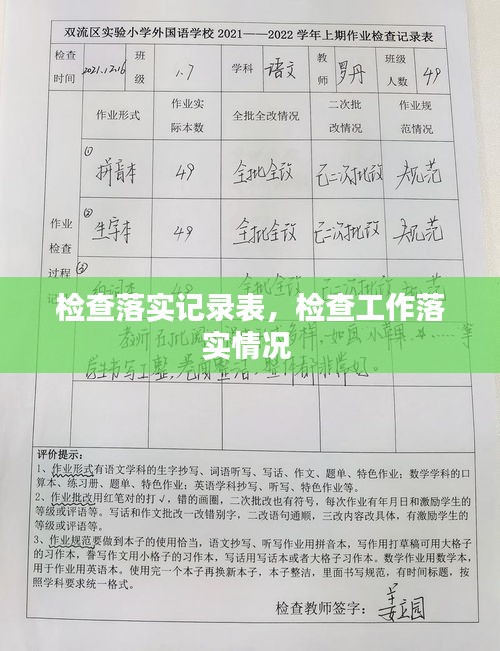 双流区实验小学外国语学校 2021——2022 学年上期作业检查记录表
检查时间 2021.12.16 班级 1.7 学科 语文 教师 罗丹 班级人数 49
作业形式 作业实际本数 全批全改情况 二次批改情况 作业规范情况
作业检查过程记
① 拼音本 49 全批全改 已二次批改 规范
② 生字本 49 全批全改 已二次批改 规范
③
检查落实记录表，检查工作落
实情况
学生书写工整,卷面整洁,整体都非常好。
评价提示：
1、作业形式有语文学科的生字抄写、词语听写、写话、作文、题单、特色作业；数学学科的口
算本、练习册、题单、特色作业；英语学科抄写、听写、特色作业等。
2、作业批改用红笔对的打√，错的画圈，二次批改也有符号，每次作业有年月日和激励学生的
等级或评语等。写话和作文批改一改错别字，二改语句通顺，三改内容改具体，有激励学生的
等级或评语等。
3、作业规范要做到本子的使用恰当，语文抄写、听写作业用拼音本，写作用打草稿可用大格子
的习作本，誊写作文用小格子的习作本，写话用写话本或者大格子习作本。数学作业用数学本，
用于作业用英语本。使用完一个本子再换新本子，本子整洁，里面书写规范，有时间标题，按
照学科要求统一格式。
检查教师签字：姜立园